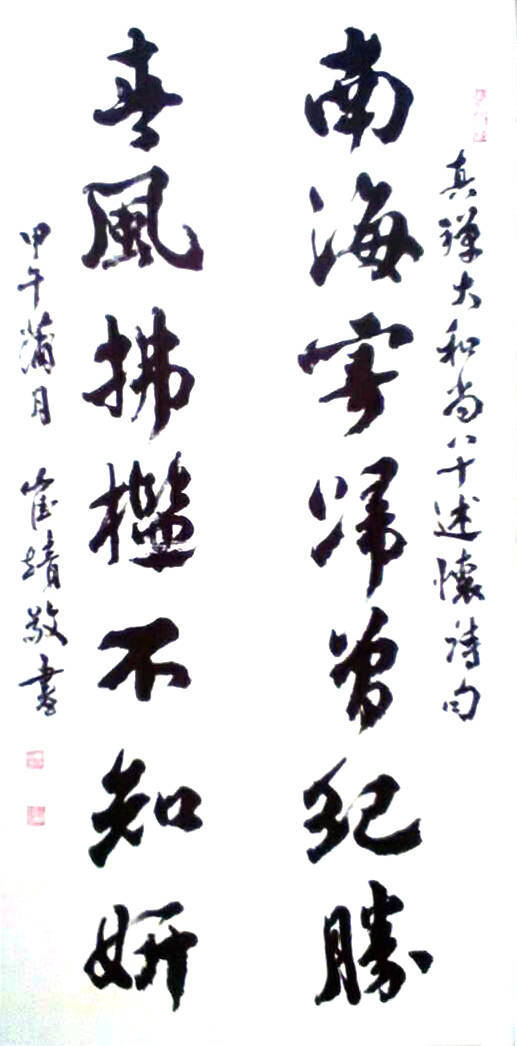 真禪大和尚八十述懷詩句
南海寄歸曾紀勝
春風拂檻不知妍
甲午蒲月 崔靖敬書